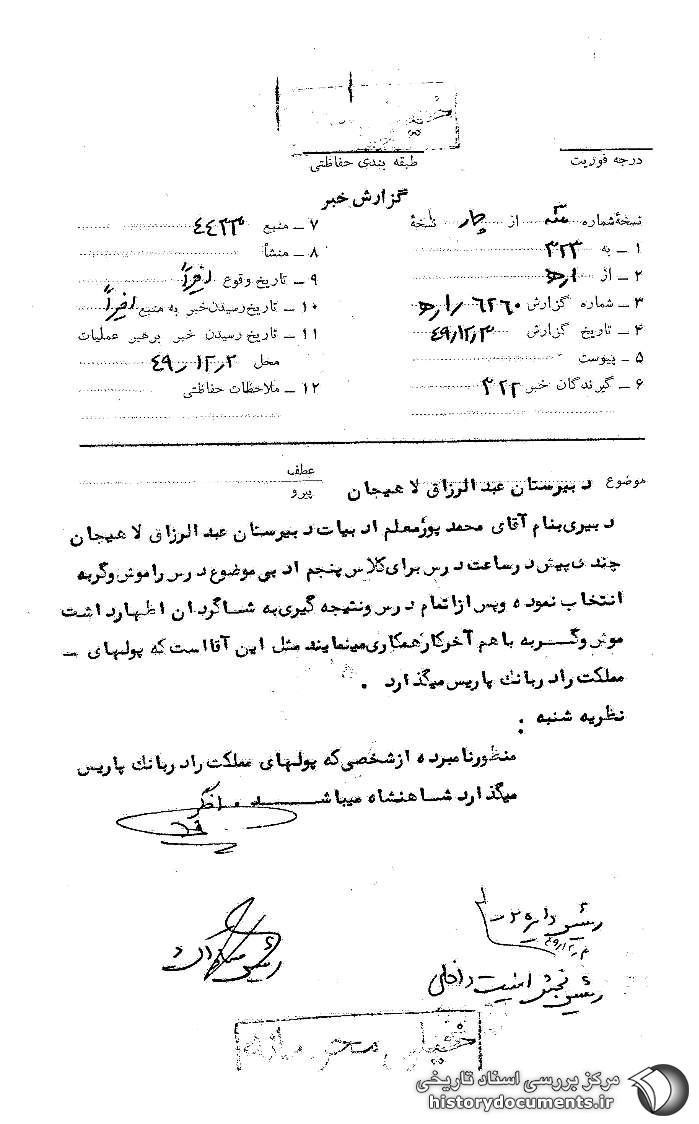 خیلی
درجه فوریت
طبقه بندی حفاظتی
گزارش خبر
نسخهٔ شماره سه از چهار نسخهٔ
۱ ــ به ۳۲۳
۲ ــ از ۵ ر ا
۳ ــ شماره گزارش ۶۲۶۰ ر ۵ ر ا
۴ ــ تاریخ گزارش ۴۹٫۱۲٫۳
۵ ــ پیوست
۶ ــ گیرندگان خبر ۳۲۲
۷ ــ منبع ۴۴۳۳
۸ ــ منشأ
۹ ــ تاریخ وقوع اخیراً
۱۰ ــ تاریخ رسیدن خبر به منبع اخیراً
۱۱ ــ تاریخ رسیدن خبر برهبر عملیات
محل ۴۹٫۱۲٫۲
۱۲ ــ ملاحظات حفاظتی
موضوع دبیرستان عبدالرزاق لاهیجان
عطف
پیرو
دبیری بنام آقای محمد پورمعلم ادبیات دبیرستان عبدالرزاق لاهیجان
چندی پیش در ساعت درس برای کلاس پنجم ادبی موضوع درس را موش و گربه
انتخاب نموده و پس از اتمام درس و نتیجه گیری به شاگردان اظهار داشت
موش و گربه با هم آخر کار همکاری مینمایند مثل این آقا است که پولهای ــ
مملکت را در بانک پاریس میگذارد .
نظریه شنبه :
منظور نامبرده از شخصی که پولهای مملکت را در بانک پاریس
میگذارد شاهنشاه میباشد . افگر
رئیس دایره
رئیس بخش امنیت داخلی
رئیس ساواک
خیلی محرمانه
مرکز بررسی اسناد تاریخی
historydocuments.ir